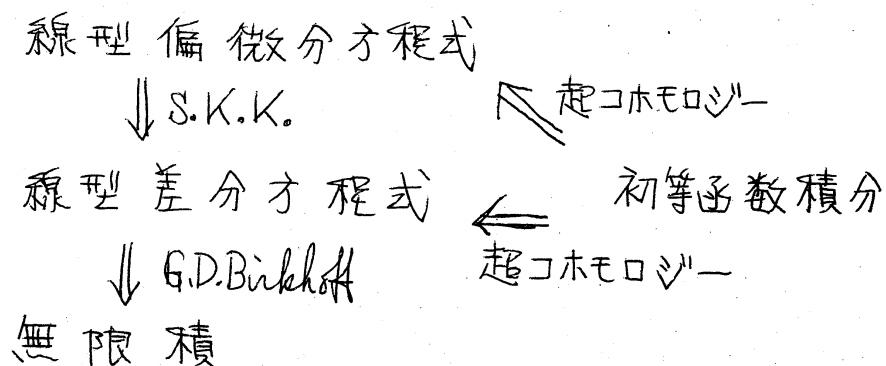 線型偏微分方程式
⇓ S.K.K.
超コホモロジー
線型差分方程式
初等函数積分
⇓ G.D.Birkhoff
超コホモロジー
無限積